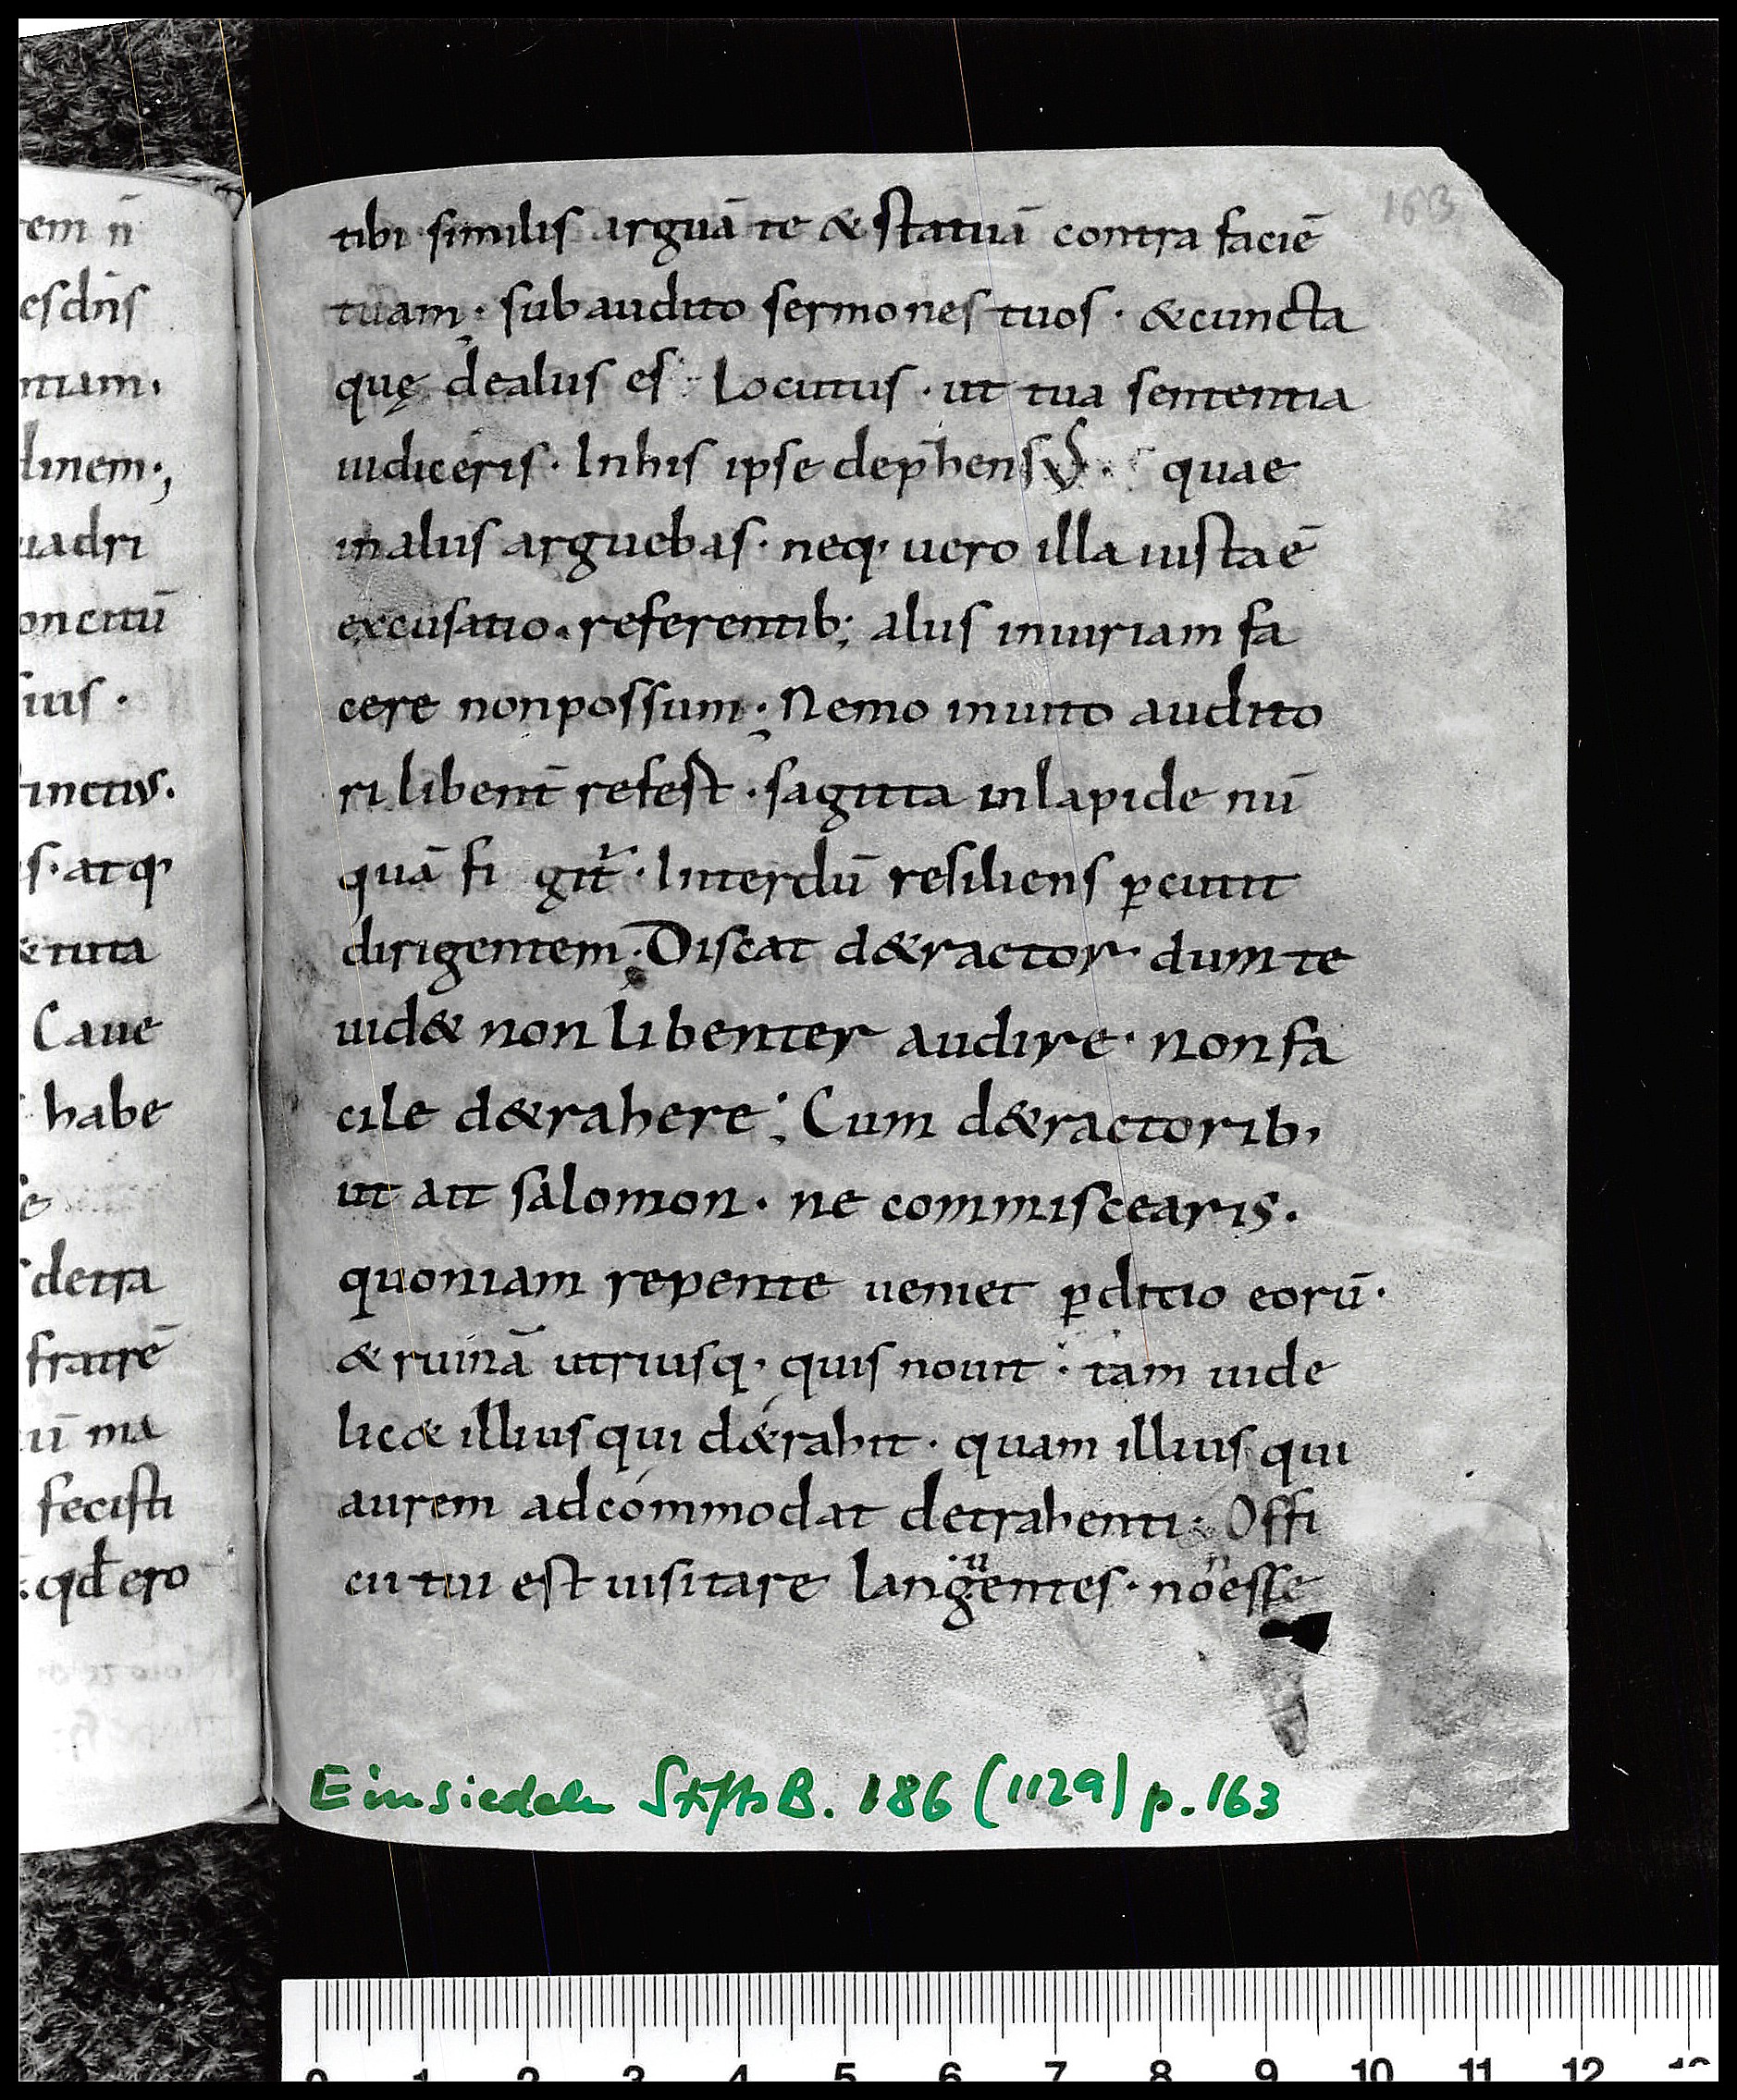 rem n̄
esdn̄s
ntiam.
linem;
uadri
oncitū
suis.
tinctus.
s. atq.
& tuta
Caue
habe
detra
fratrē
ū ma
fecisti
qđ ero
163
tibi similis arguā te & statuā contra faciē
tuam; sub audito sermones tuos. & cuncta
quę de aliis es locutus. ut tua sententia
iudiceris. In his ipse dep̄hensus. quae
in aliis arguebas. neq. uero illa iusta ē
excusatio. referentib; aliis iniuriam fa
cere non possum; Nemo inuito audito
ri libent̄ refert. sagitta in lapide nū
quā fi git̄. Interdū resiliens ꝑcutit
dirigentem; Discat d&ractor dum te
uid& non libenter audire. non fa
cile d&rahere; Cum d&ractorib,
ut ait salomon. ne commiscearis.
quoniam repente ueniet ꝑditio eorū.
& ruinā utriusq. quis nouit. tam uide
lic& illius qui d&rahit. quam illius qui
aurem adcommodat detrahenti. Offi
cii tui est uisitare langu̇entes. nosse
Einsiedeln StiftsB. 186 (1129) p. 163
0 1 2 3 4 5 6 7 8 9 10 11 12